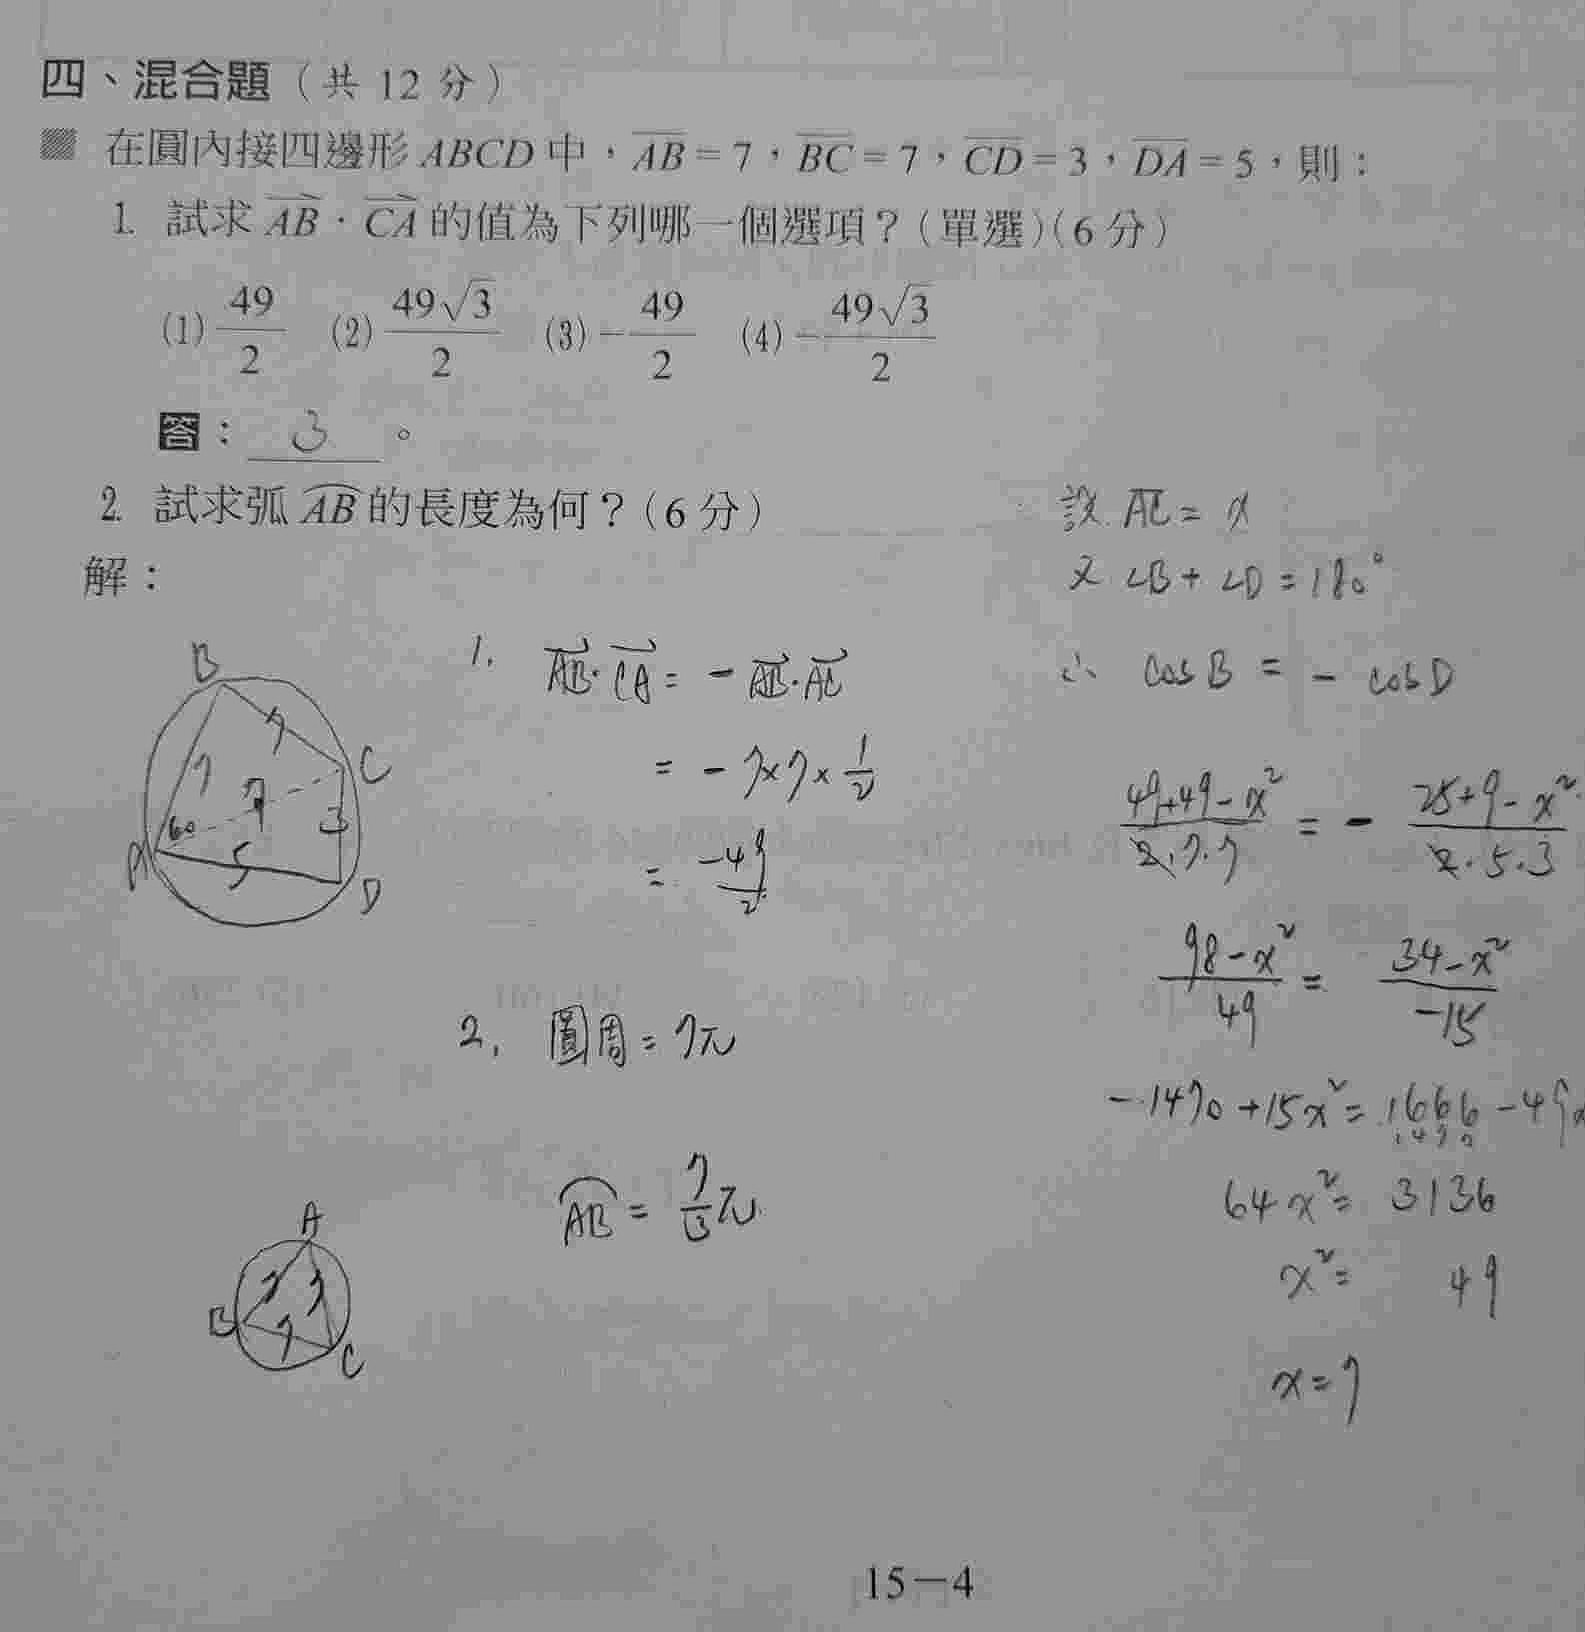 四、混合題（共 12 分）
在圓內接四邊形 ABCD 中，$\overline{AB}=7$，$\overline{BC}=7$，$\overline{CD}=3$，$\overline{DA}=5$，則：
1. 試求 $\overrightarrow{AB}\cdot\overrightarrow{CA}$ 的值為下列哪一個選項？（單選）（6 分）
(1) $\frac{49}{2}$ (2) $\frac{49\sqrt{3}}{2}$ (3) $-\frac{49}{2}$ (4) $-\frac{49\sqrt{3}}{2}$
答：3。
2. 試求弧 $\overset{\frown}{AB}$ 的長度為何？（6 分）
解：
B
7
7
C
7
60
3
A
5
D
1. $\overrightarrow{AB}\cdot\overrightarrow{CA}=-\overrightarrow{AB}\cdot\overrightarrow{AC}$
$=-7\times7\times\frac{1}{2}$
$=\frac{-49}{2}$
2. 圓周 = 7π
$\overset{\frown}{AB}=\frac{7}{3}π$
A
7 7
B 7
C
設 $\overline{AC}=x$
又 ∠B + ∠D = 180°
∴ cos B = − cos D
$\frac{49+49-x^2}{2\cdot7\cdot7}=-\frac{25+9-x^2}{2\cdot5\cdot3}$
$\frac{98-x^2}{49}=\frac{34-x^2}{-15}$
$-1470+15x^2=1666-49x$
1470
$64x^2=3136$
$x^2=49$
$x=7$
15－4